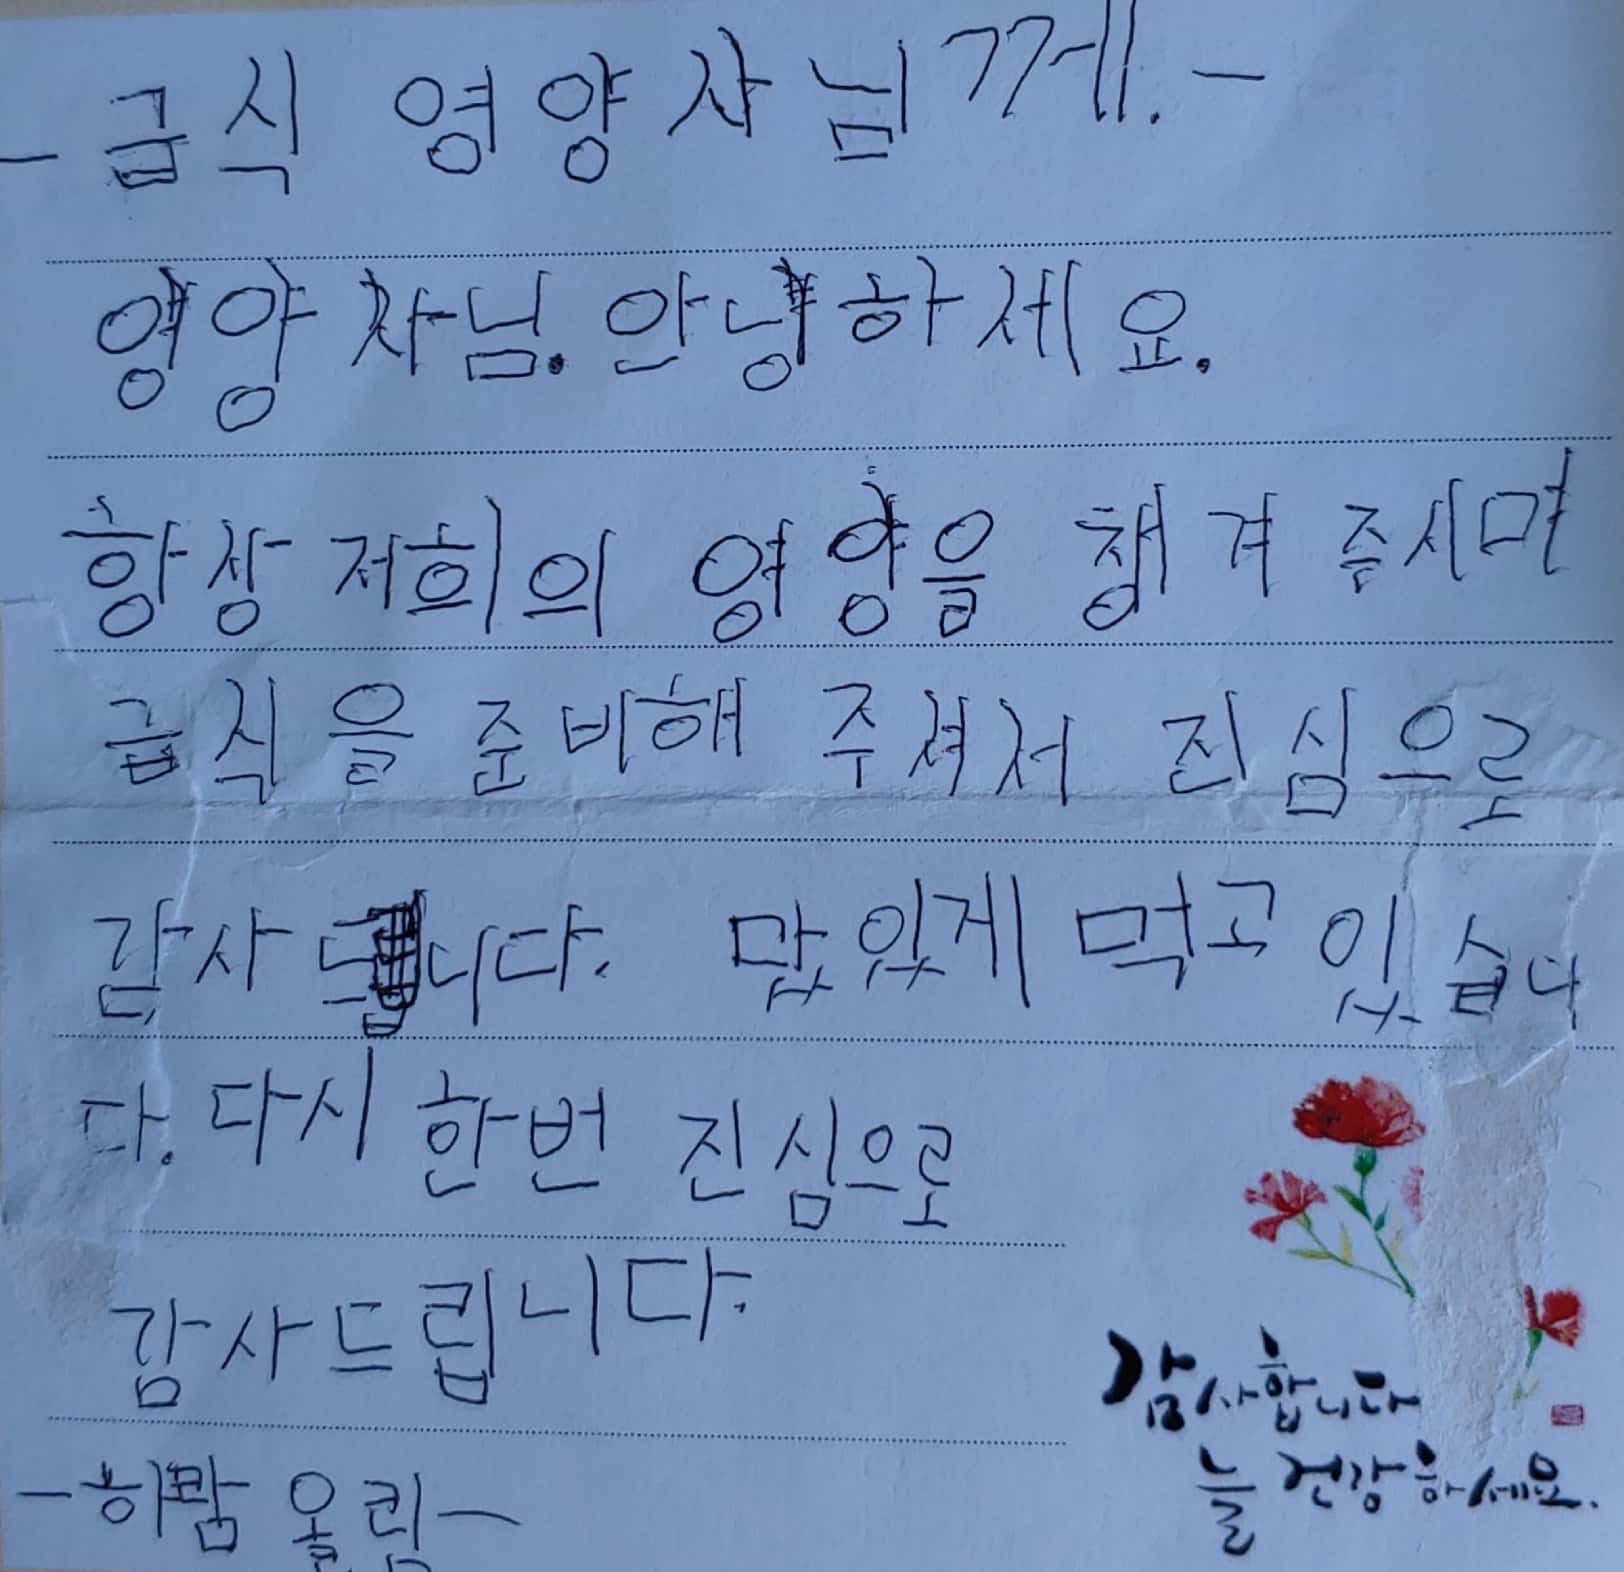 - 급식 영양사님께. -
영양사님. 안녕하세요.
항상 저희의 영양을 챙겨 주시며
급식을 준비해 주셔서 진심으로
감사 드립니다. 맜있게 먹고 있습니
다. 다시 한번 진심으로
감사드립니다.
올림-
감사합니다
늘 건강하세요.